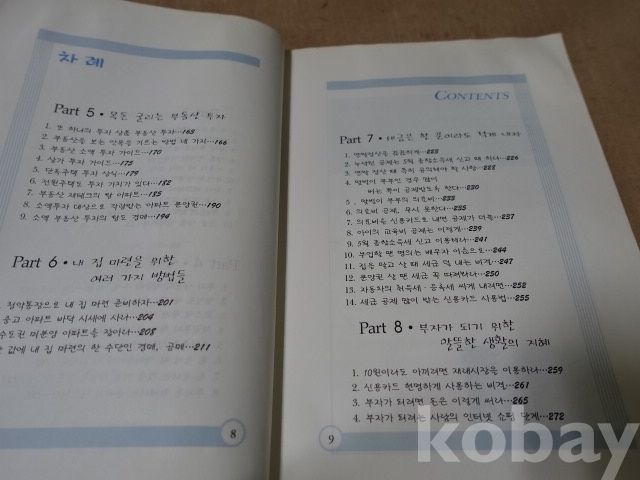 차례
Part 5 · 목돈 굴리는 부동산 투자
1. 또 하나의 투자 상품 부동산 투자···165
2. 부동산을 보는 안목을 기르는 방법 네 가지···166
3. 부동산 소액 투자 가이드···170
4. 상가 투자 가이드···175
5. 단독주택 투자 상식···179
6. 전원주택도 투자 가치가 있다···182
7. 부동산 재테크의 왕 아파트···185
8. 소액투자 대상으로 각광받는 아파트 분양권···190
9. 소액 부동산 투자의 왕도 경매···194
Part 6 · 내 집 마련을 위한
여러 가지 방법들
청약통장으로 내 집 마련 준비하자···201
중고 아파트 바닥 시세에 사라···204
수도권 미분양 아파트를 잡아라···208
값에 내 집 마련의 한 수단인 경매, 공매···211
8
CONTENTS
Part 7 · 세금은 한 푼이라도 적게 내자
1. 연말정산을 꼼꼼하게···223
2. 누락된 공제는 5월 종합소득세 신고 때 하라···226
3. 연말 정산 때 특히 유의해야 할 사항···228
4. 맞벌이 부부인 경우 많이
버는 쪽이 공제받도록 한다···230
5. 맞벌이 부부의 의료비···233
6. 의료비 공제, 무시 못한다···235
7. 의료비를 신용카드로 내면 공제가 더욱···237
8. 아이의 교육비 공제는 이렇게···239
9. 5월 종합소득세 신고 이용해라···241
10. 부업할 땐 명의는 배우자 이름으로···244
11. 집을 팔고 살 때 세금 덕 내는 비결···247
12. 분양권 살 땐 세금 꼭 따져봐라···250
13. 자동차의 취득세 · 등록세 싸게 내려면···252
14. 세금 공제 많이 받는 신용카드 사용법···255
Part 8 · 부자가 되기 위한
알뜰한 생활의 지혜
1. 10원이라도 아끼려면 재래시장을 이용하라···259
2. 신용카드 현명하게 사용하는 비결···261
3. 부자가 되려면 돈은 이렇게 써라···265
4. 부자가 되려는 사람의 인터넷 쇼핑 단계···272
9
kobay